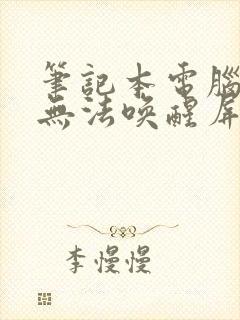 筆記本電腦
無法喚醒屏
李慢慢